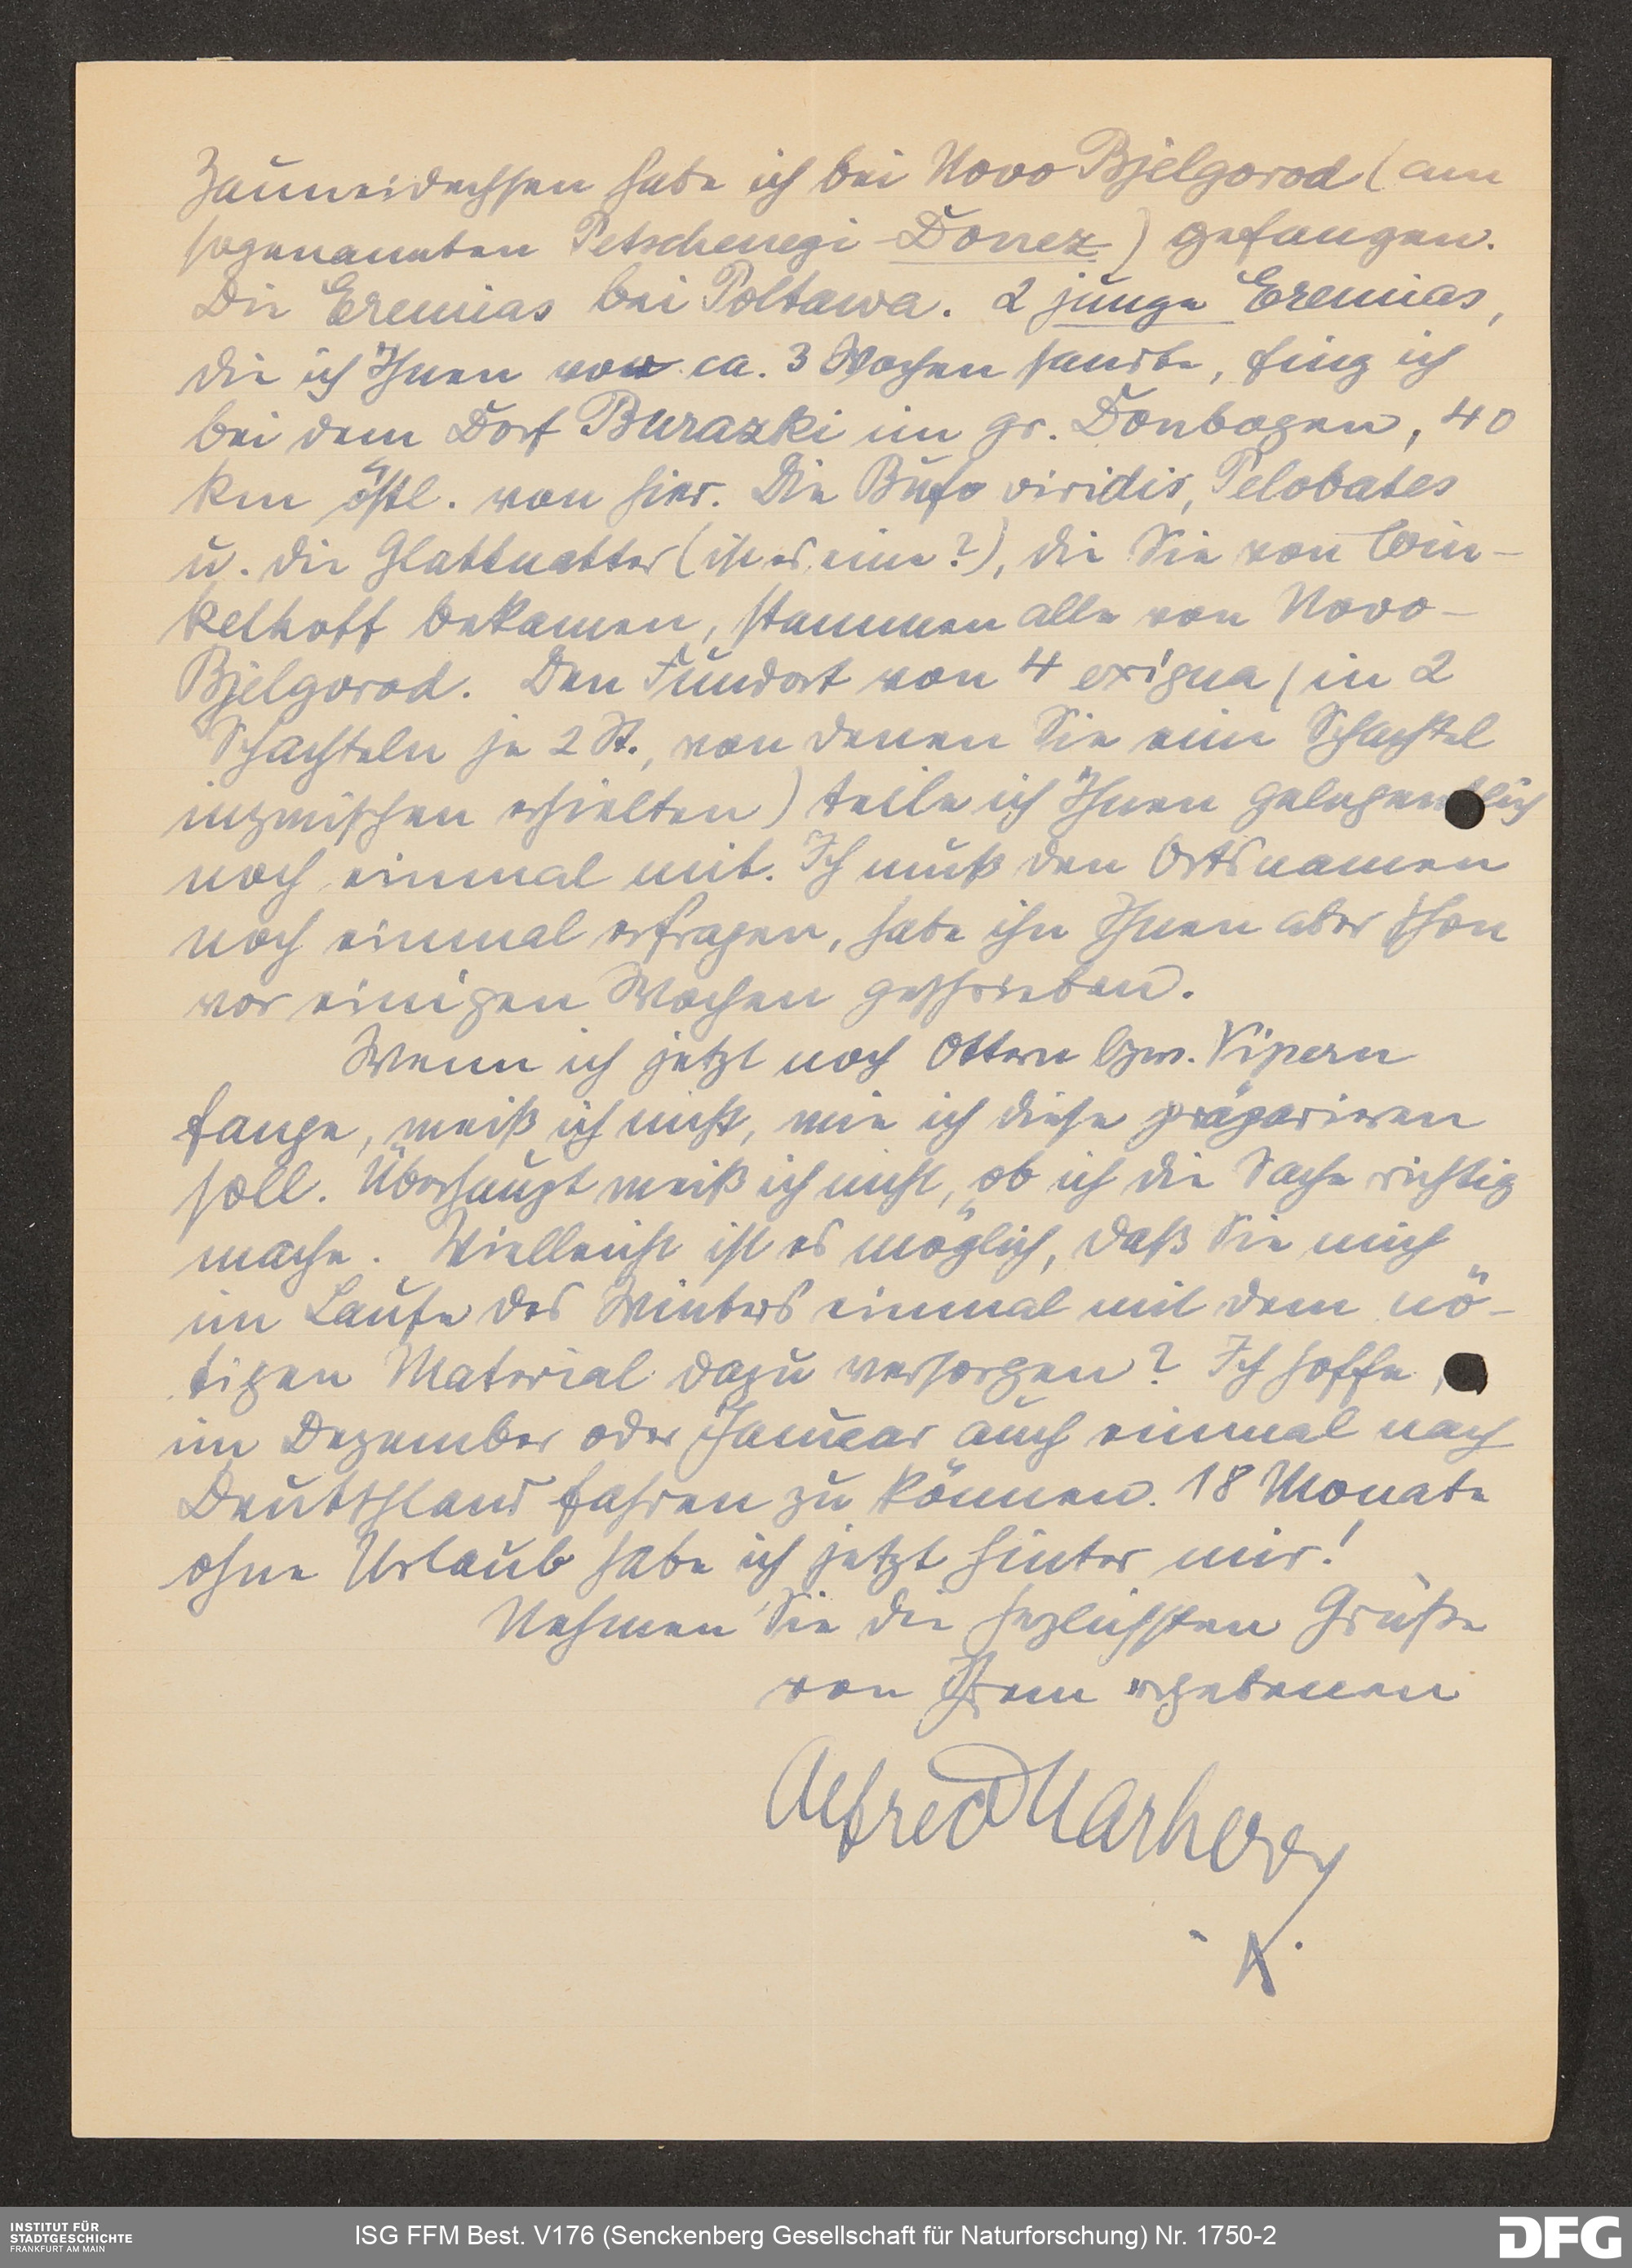 Zauneidechsen habe ich bei Novo Bjelgorod (am
sogenannten Petschenegi-Donez) gefangen.
Die Eremias bei Poltawa. 2 junge Eremias,
die ich Ihnen vor ca. 3 Wochen sandte, fing ich
bei dem Dorf Burazki im gr. Donbogen, 40
km östl. von hier. Die Bufo viridis, Pelobates
u. die Glattnatter (ist es eine?), die Sie von Win-
kelhoff bekamen, stammen alle von Novo-
Bjelgorod. Den Fundort von 4 exigua (in 2
Schachteln je 2 St., von denen Sie eine Schachtel
inzwischen erhielten) teile ich Ihnen gelegentlich
noch einmal mit. Ich muß den Ortsnamen
noch einmal erfragen, habe ihn Ihnen aber schon
vor einigen Wochen geschrieben.
Wenn ich jetzt noch Ottern bzw. Vipern
fange, weiß ich nicht, wie ich diese präparieren
soll. Überhaupt weiß ich nicht, ob ich die Sache richtig
mache. Vielleicht ist es möglich, daß Sie mich
im Laufe des Winters einmal mit dem nö-
tigen Material dazu versorgen? Ich hoffe,
im Dezember oder Januar auch einmal nach
Deutschland fahren zu können. 18 Monate
ohne Urlaub habe ich jetzt hinter mir!
Nehmen Sie die herzlichsten Grüße
von Ihrem ergebenen
Alfred
INSTITUT FÜR
STADTGESCHICHTE
FRANKFURT AM MAIN
ISG FFM Best. V176 (Senckenberg Gesellschaft für Naturforschung) Nr. 1750-2
DFG